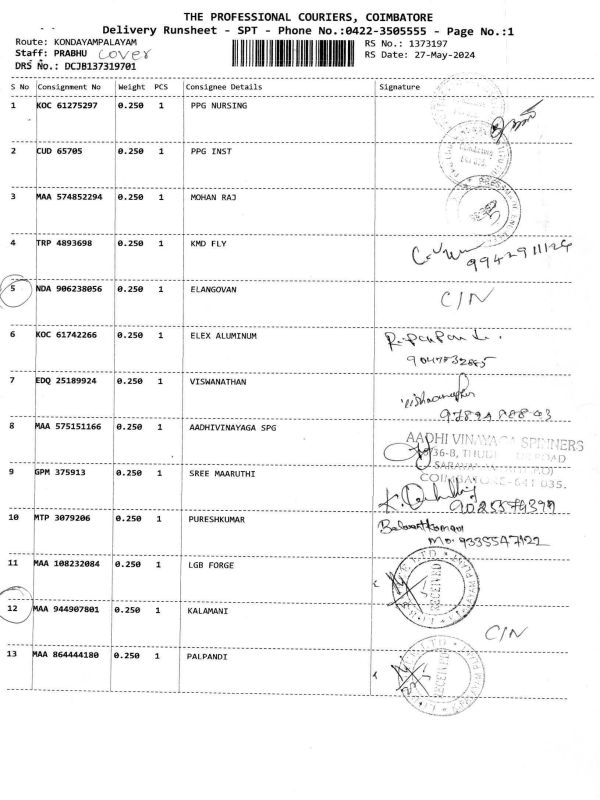 THE PROFESSIONAL COURIERS, COIMBATORE
Delivery Runsheet - SPT - Phone No.:0422-3505555 - Page No.:1
Route: KONDAYAMPALAYAM
RS No.: 1373197
Staff: PRABHU cover
RS Date: 27-May-2024
DRS No.: DCJB137319701
S No Consignment No Weight PCS Consignee Details Signature
1 KOC 61275297 0.250 1 PPG NURSING
2 CUD 65705 0.250 1 PPG INST
3 MAA 574852294 0.250 1 MOHAN RAJ
4 TRP 4893698 0.250 1 KMD FLY
9942911124
5 NDA 906238056 0.250 1 ELANGOVAN C/N
6 KOC 61742266 0.250 1 ELEX ALUMINUM
9047832885
7 EDQ 25189924 0.250 1 VISWANATHAN
8 MAA 575151166 0.250 1 AADHIVINAYAGA SPG
AADHI VINAYAGA SPINNERS
ROAD
COIMBATORE-641 035.
9 GPM 375913 0.250 1 SREE MAARUTHI
10 MTP 3079206 0.250 1 PURESHKUMAR
Mo. 9335547122
11 MAA 108232084 0.250 1 LGB FORGE
RECEIVED
12 MAA 944907801 0.250 1 KALAMANI C/N
13 MAA 864444180 0.250 1 PALPANDI
RECEIVED